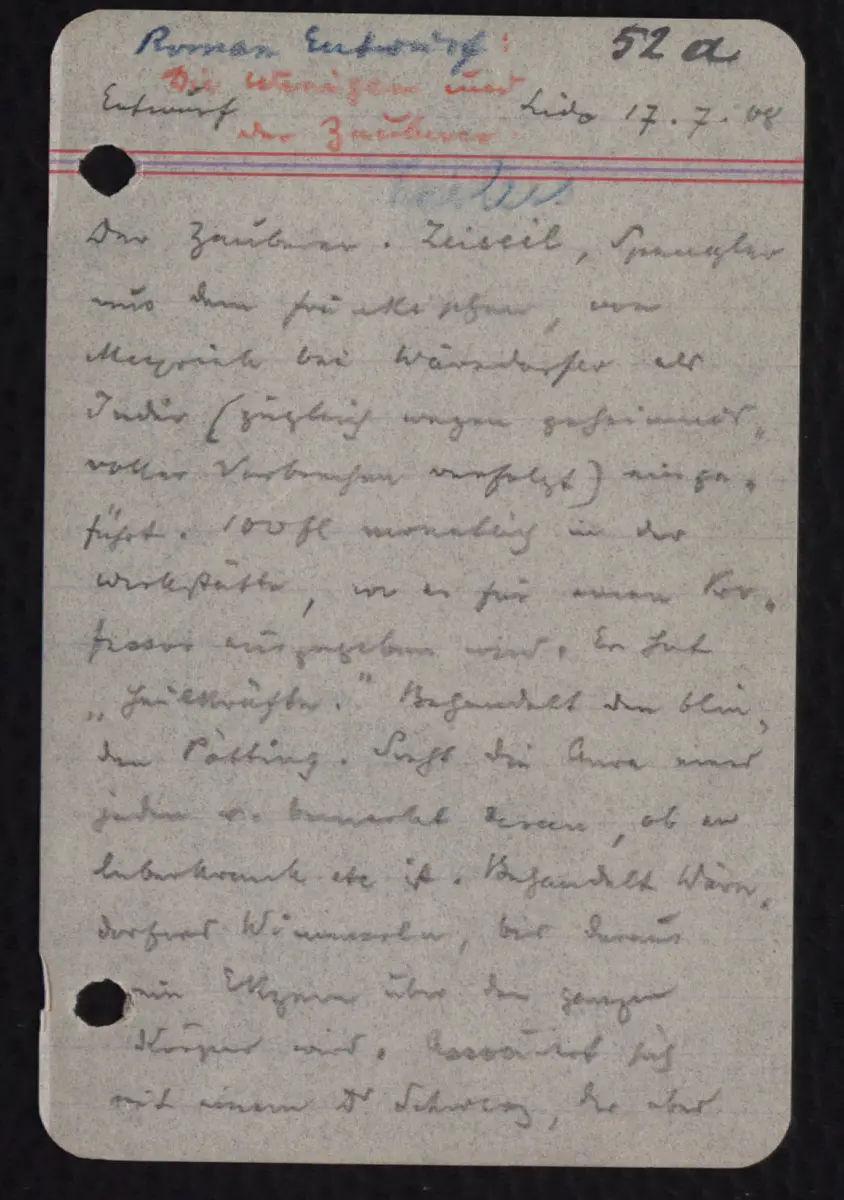 Roman Entwurf: 52 a
Die Wenigen und
Entwurf Lido 17. 7. 08
der Zauberer.
Der Zauberer. Zeiseil, Spengler
aus dem, von
bei Wärndorfer als
Inder (zugleich wegen geheimnis„
voller Verbrechen verfolgt) einge„
führt. 100 fl monatlich in der
Werkstätte, wo er für einen Pro„
fessor ausgegeben wird. Er hat
„Heilkräfte.“ Behandelt den blin„
den Pötting. Sieht die Aura eines
jeden u. bemerkt daran, ob er
leberkrank etc ist. Behandelt Wärn„
dorfers Wimmerln, bis daraus
ein Ekzem über den ganzen
Körper wird. Associiert sich
mit einem Dr Schwarz, der aber